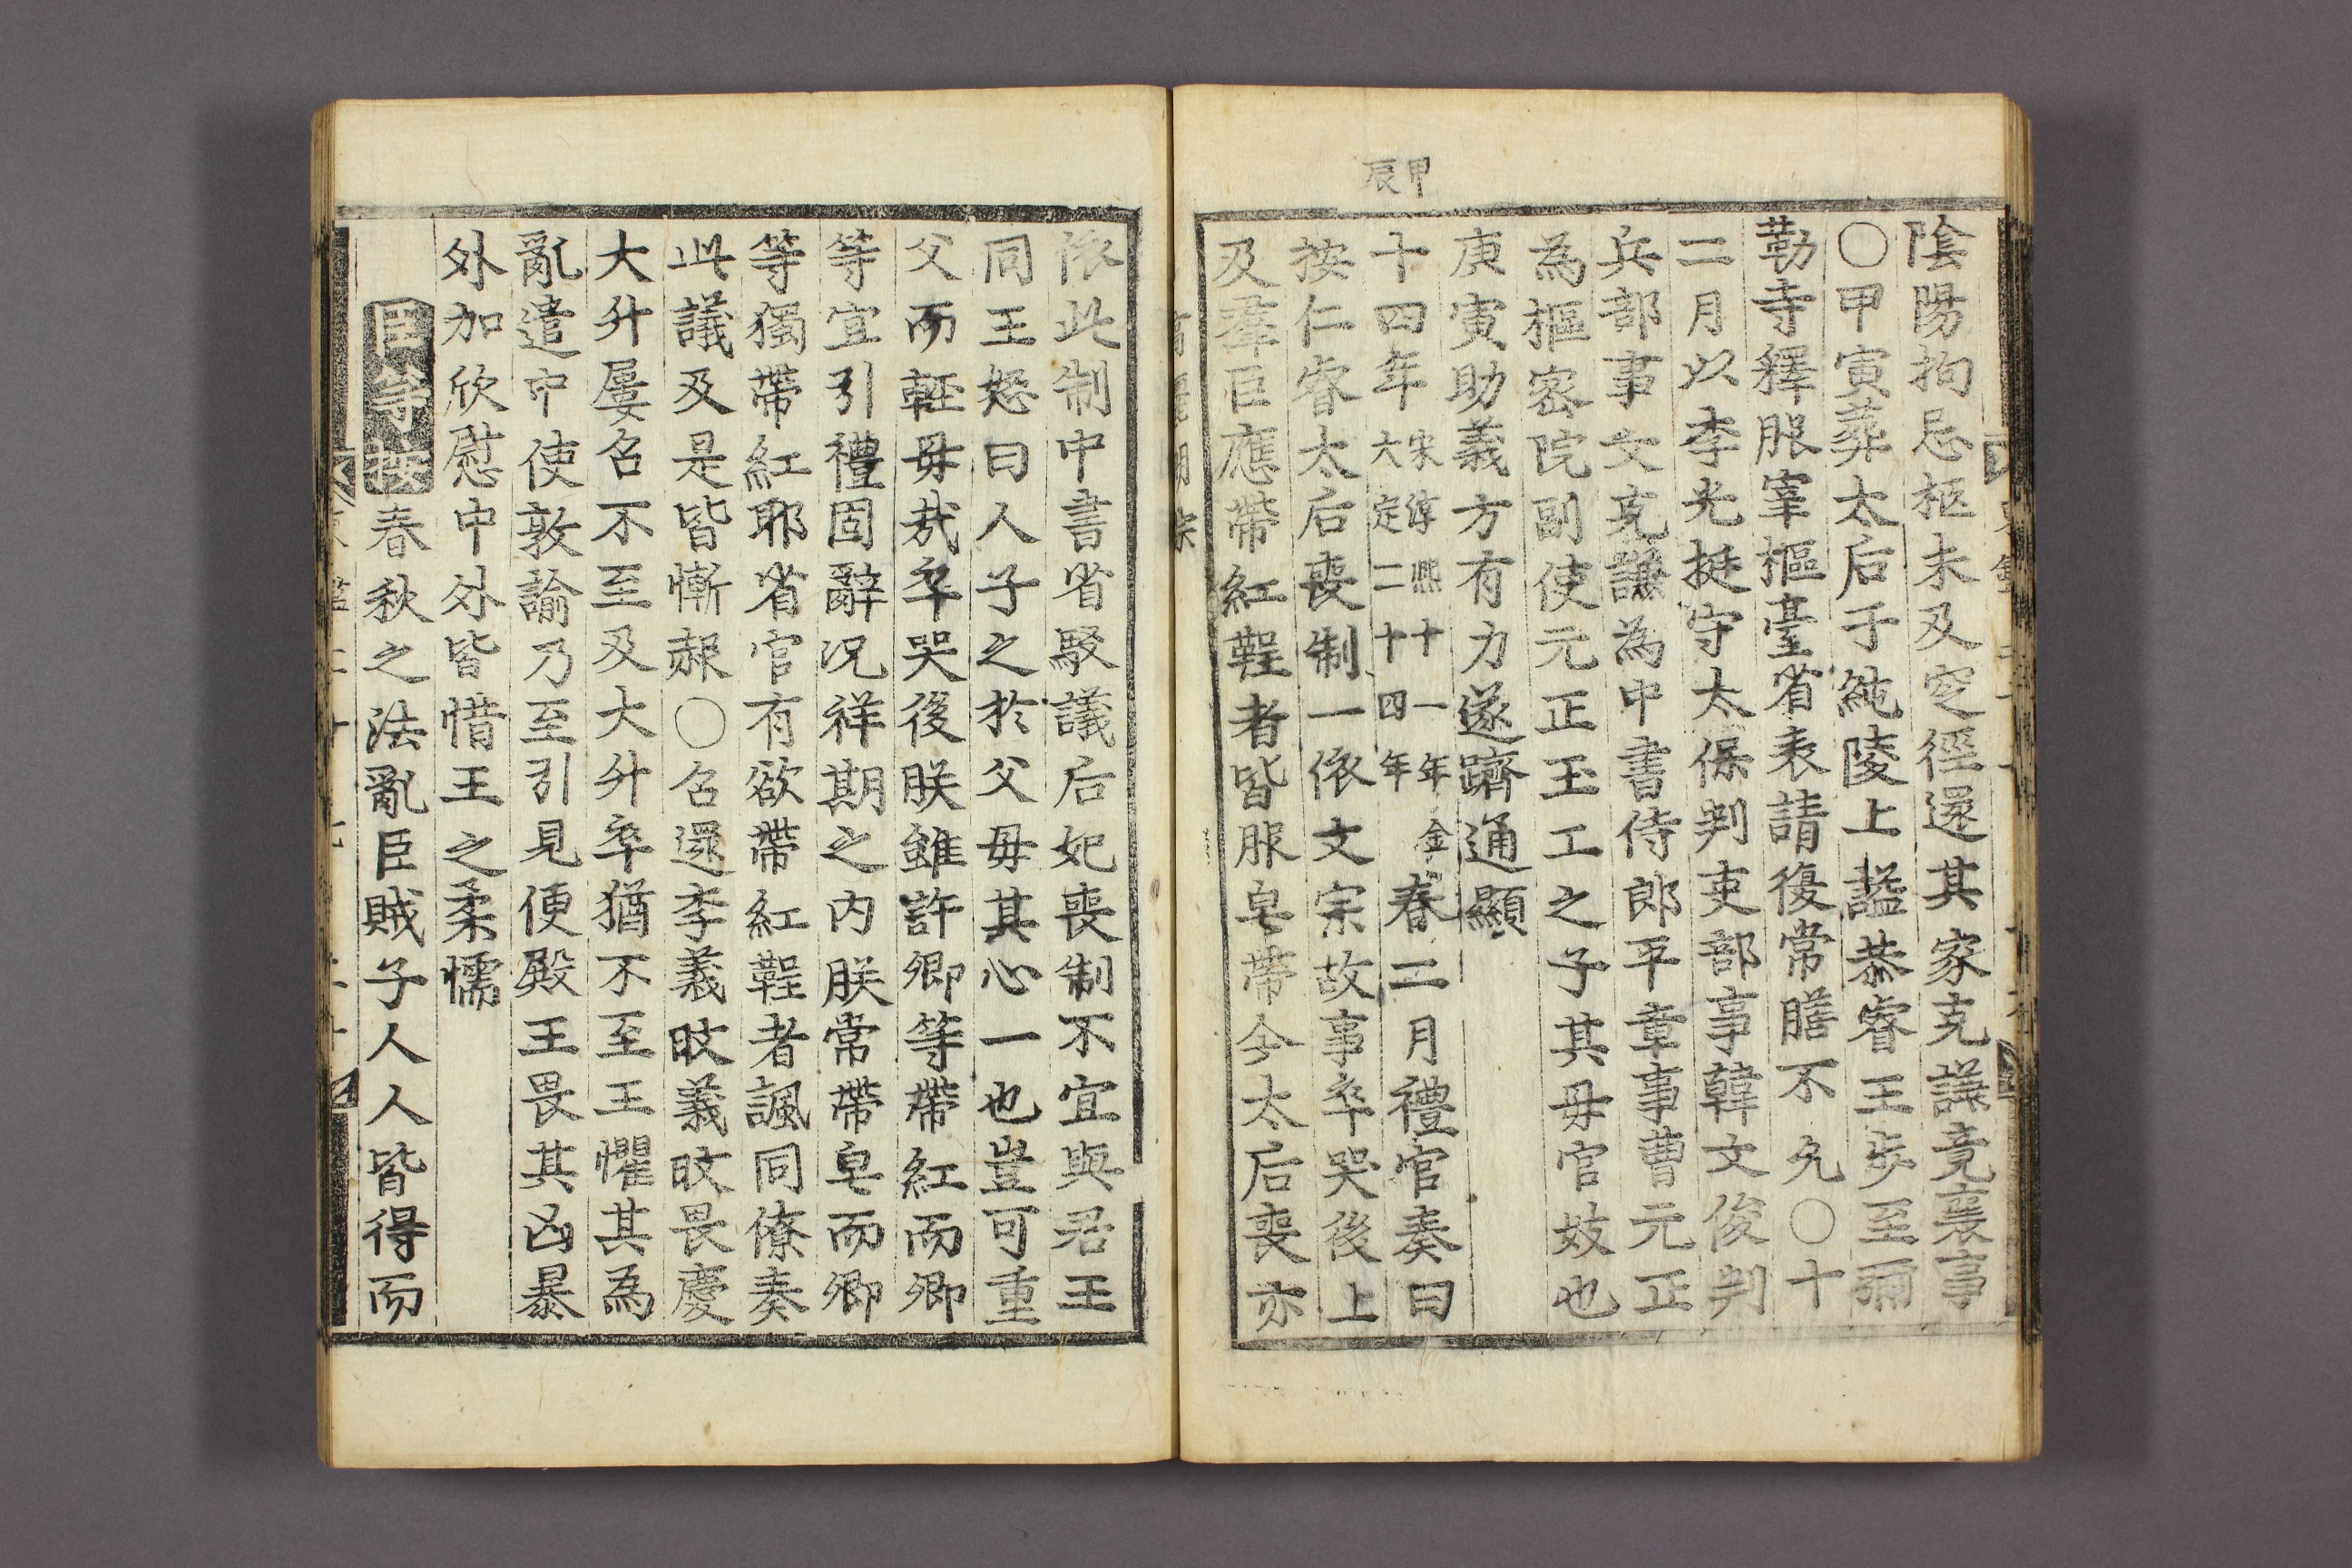 陰陽拘忌柩未及窆徑還其家克謙竟襄事
〇甲寅葬太后于純陵上諡恭睿王步至彌
勒寺釋服宰樞臺省表請復常膳不允〇十
二月以李光挺守太保判吏部事韓文俊判
兵部事文克謙為中書侍郎平章事曹元正
為樞密院副使元正玉工之子其毋官妓也
庚寅助義方有力遂躋通顯
甲辰
十四年宋淳熙十一年金大定二十四年春二月禮官奏曰
按仁睿太后喪制一依文宗故事卒哭後上
及羣臣應帶紅鞓者皆服皂帶今太后喪亦
依此制中書省駁議后妃喪制不宜與君王
同王怒曰人子之於父毋其心一也豈可重
父而輕毋哉卒哭後朕雖許卿等帶紅而卿
等宜引禮固辭况祥期之内朕常帶皂而卿
等獨帶紅耶省官有欲帶紅鞓者諷同僚奏
此議及是皆慚赧〇召還李義旼義旼畏慶
大升屢召不至及大升卒猶不至王懼其為
亂遣中使敦諭乃至引見便殿王畏其凶暴
外加欣慰中外皆惜王之柔懦
臣崇按春秋之法亂臣賊子人人皆得而